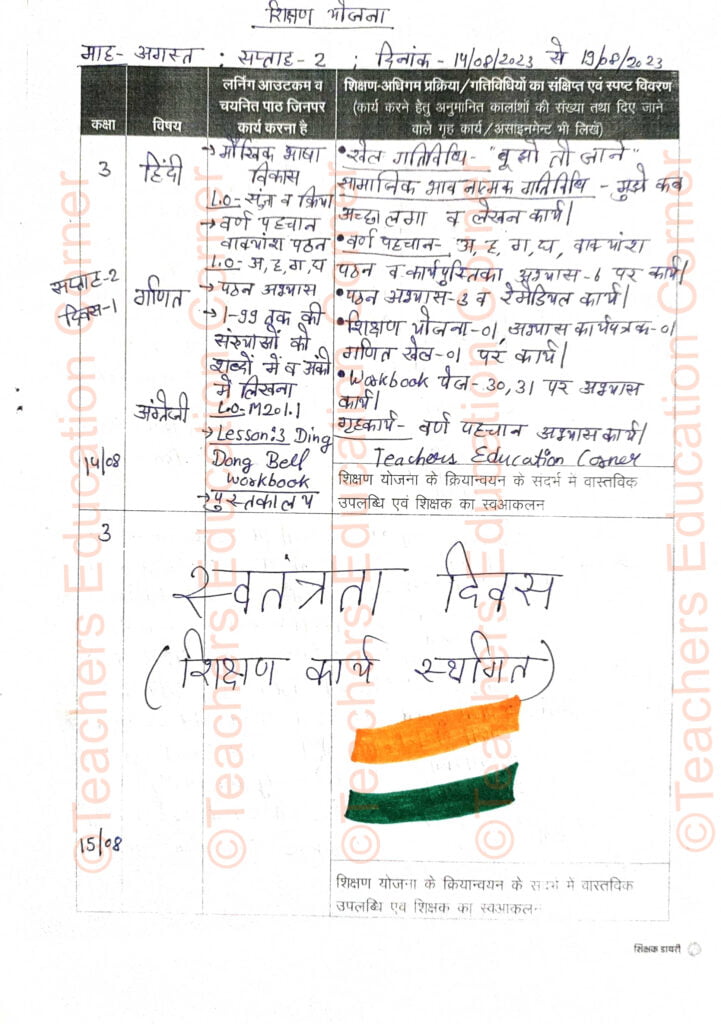 शिक्षण योजना
माह- अगस्त ; सप्ताह - 2 ; दिनांक - 14/08/2023 से 19/08/2023
कक्षा
विषय
लर्निंग आउटकम व
चयनित पाठ जिनपर
कार्य करना है
शिक्षण-अधिगम प्रक्रिया/गतिविधियों का संक्षिप्त एवं स्पष्ट विवरण
(कार्य करने हेतु अनुमानित कालांशों की संख्या तथा दिए जाने
वाले गृह कार्य/असाइनमेन्ट भी लिखें)
सप्ताह-2
दिवस-1
3
14/08
हिंदी
गणित
अंग्रेजी
→ मौखिक भाषा
विकास
L.O- संज्ञा व क्रिया
→ वर्ण पहचान
वाक्यांश पठन
L.O- अ, ह, ग, घ
→ पठन अभ्यास
→ 1-99 तक की
संख्याओं को
शब्दों में व अंकों
में लिखना
L.O-M201.1
→ Lesson:3 Ding
Dong Bell
Workbook
→ पुस्तकालय
• खेल गतिविधि- "बूझो तो जाने"
सामाजिक भावनात्मक गतिविधि - मुझे कब
अच्छा लगा व लेखन कार्य।
• वर्ण पहचान- अ, ह, ग, घ, वाक्यांश
पठन व कार्यपुस्तिका अभ्यास-6 पर कार्य।
• पठन अभ्यास-3 व रेमेडियल कार्य।
• शिक्षण योजना-01, अभ्यास कार्यपत्रक-01
गणित खेल-01 पर कार्य।
• Workbook पेज- 30, 31 पर अभ्यास
कार्य।
गृहकार्य- वर्ण पहचान अभ्यास कार्य।
Teachers Education Corner
शिक्षण योजना के क्रियान्वयन के संदर्भ में वास्तविक
उपलब्धि एवं शिक्षक का स्वआकलन
3
स्वतंत्रता दिवस
(शिक्षण कार्य स्थगित)
15/08
शिक्षण योजना के क्रियान्वयन के संदर्भ में वास्तविक
उपलब्धि एवं शिक्षक का स्वआकलन
शिक्षक डायरी
©Teachers Education Corner
©Teachers Education Corner
©Teachers Education Corner
©Teachers Education Corner
©Teachers Education Corner